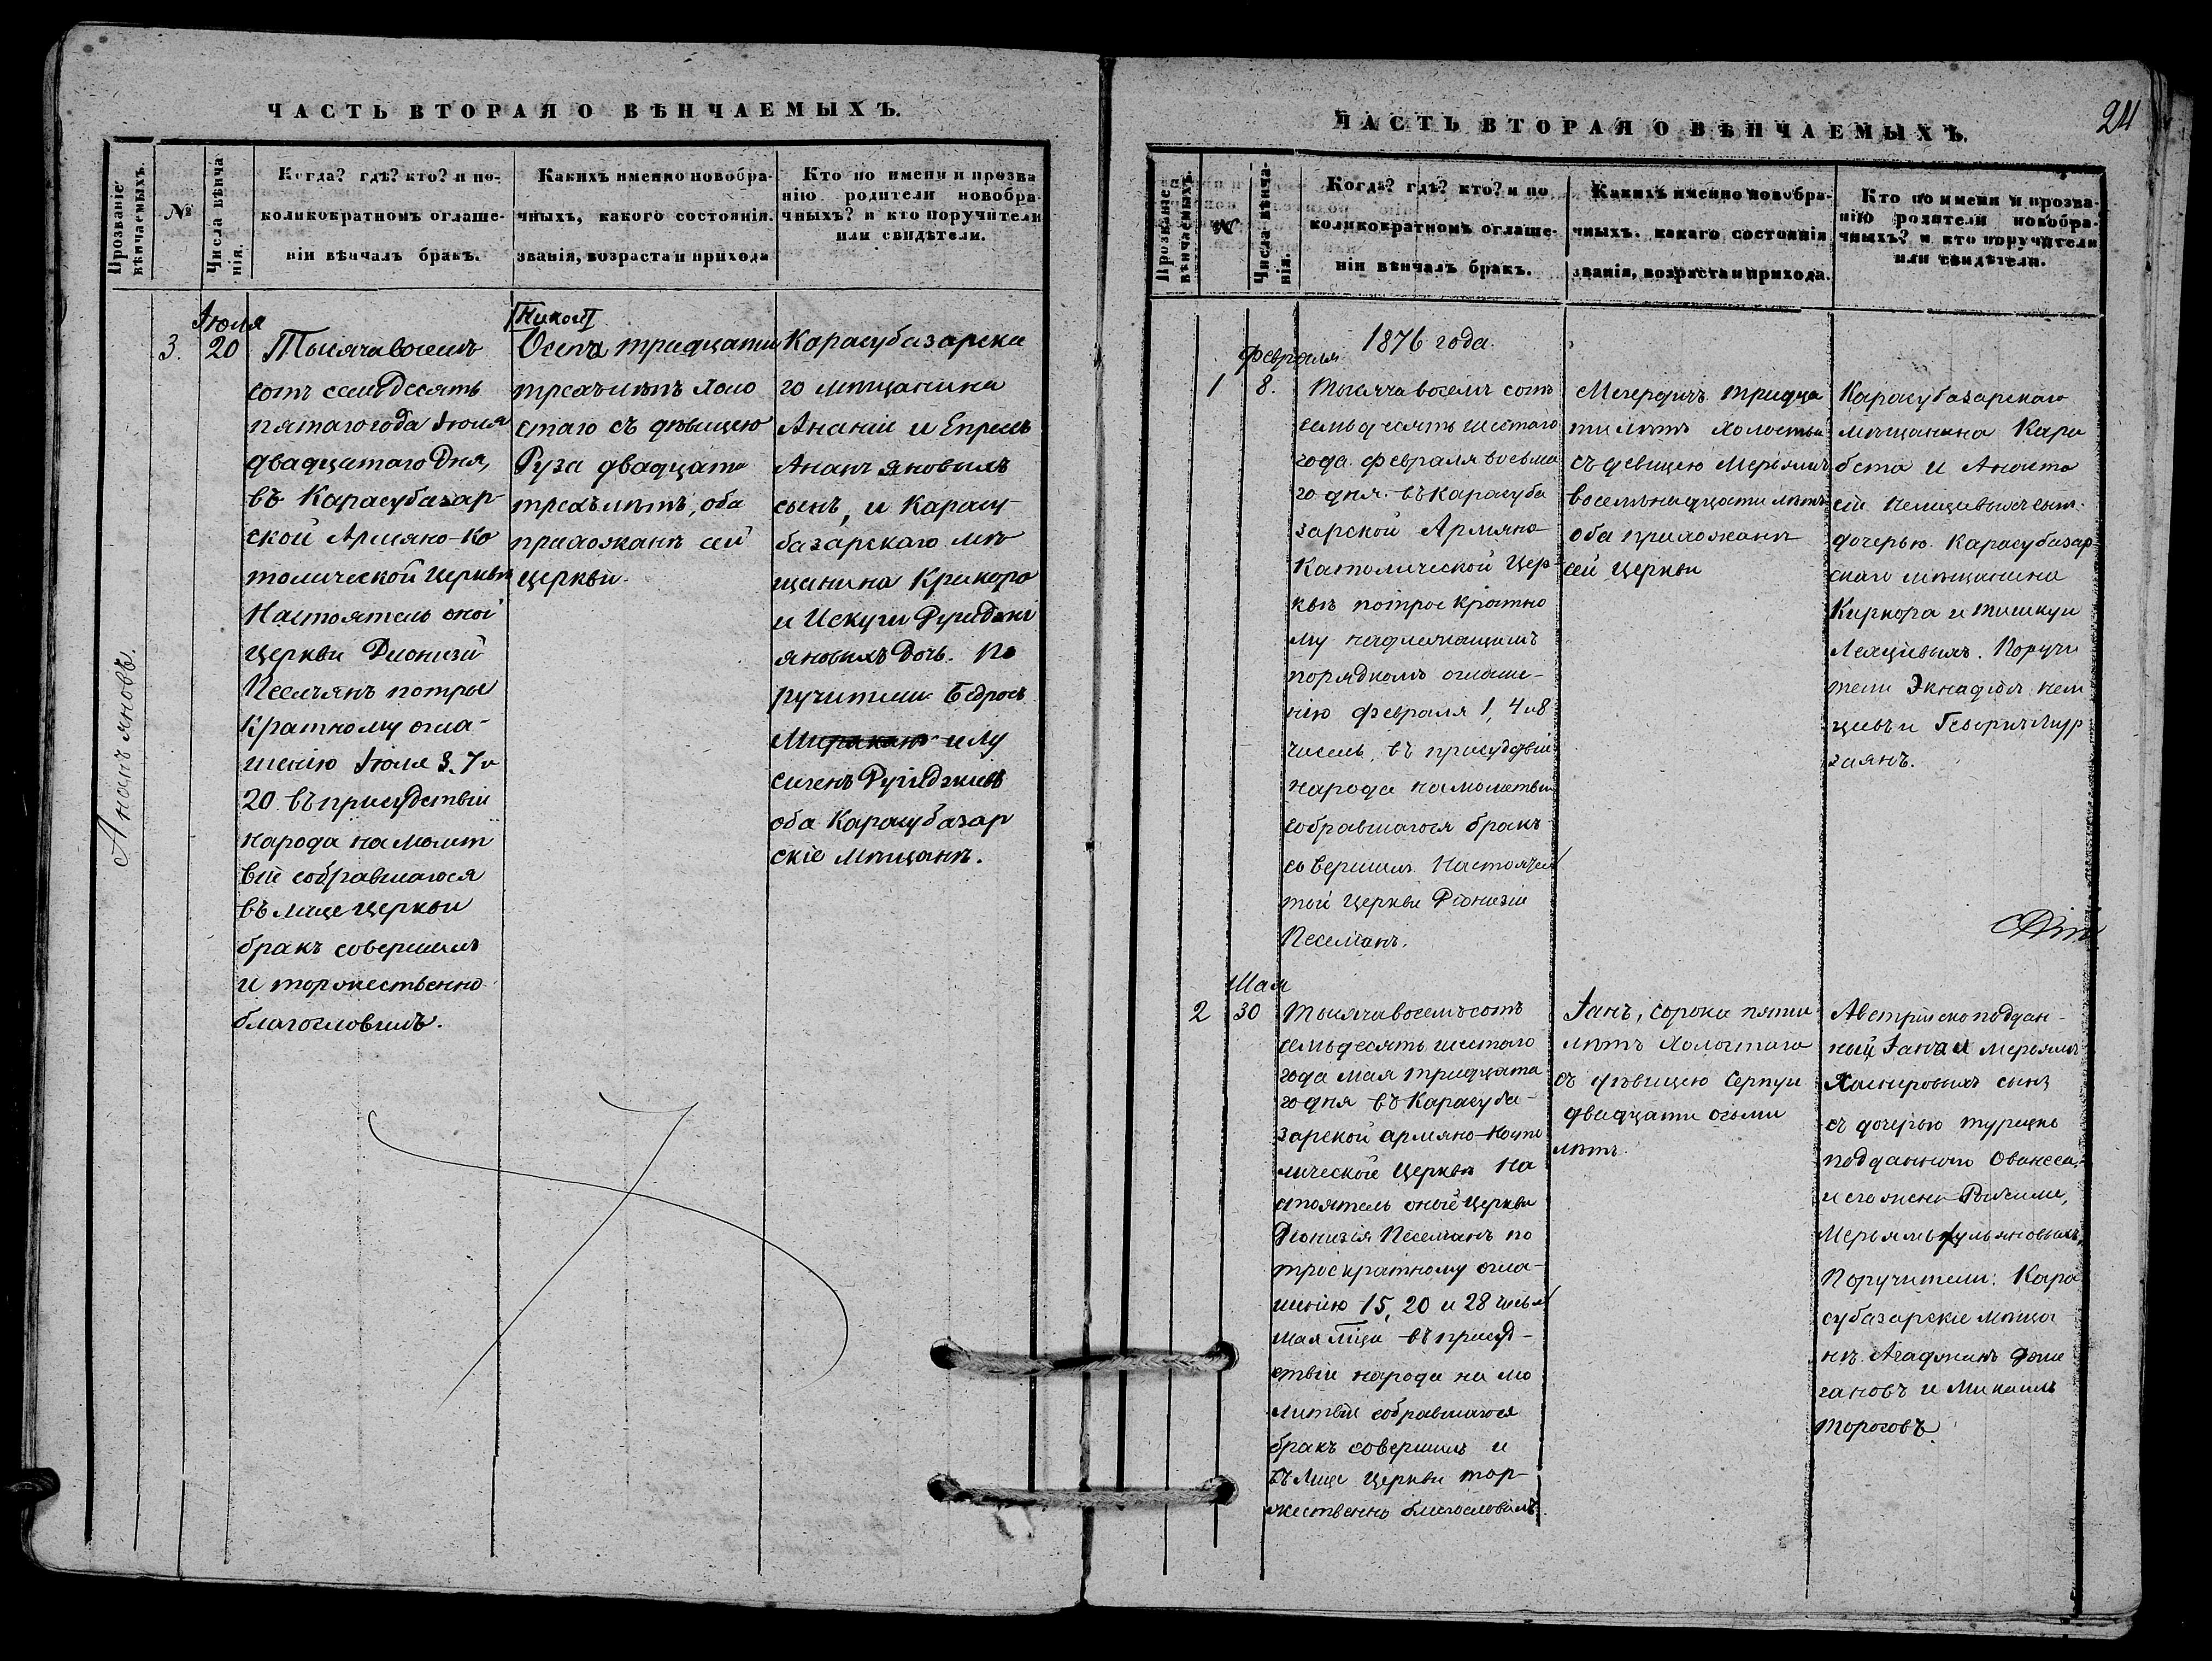 ЧАСТЬ ВТОРАЯ О ВѢНЧАЕМЫХЪ.
Прозваніе вѣнчаемыхъ.
№
Числа вѣнчанія.
Когда? гдѣ? кто? и по-
коликократномъ оглаше-
ніи вѣнчалъ бракъ.
Какихъ именно новобра-
чныхъ, какого состоянія.
званія, возраста и прихода
Кто по имени и прозва
нію родители новобра-
чныхъ? и кто поручители
или свидѣтели.
Ананъяновъ.
3.
Іюля
20
Тысяча восемь
сотъ семьдесять
пятаго года Іюля
двадцатаго Дня,
въ Карасубазар-
ской Армяно-Ка
толической Церкви
Настоятель оной
Церкви Дионизій
Песелъянъ потрое
кратному огла-
шенію Іюля 3. 7 и
20 въ присудствіи
народа на молит
віи собравшагося
въ лице Церкви
бракъ совершилъ
и торжественно
благословилъ.
Осипа тридцати
трехъ лѣтъ холо
стаго съ дѣвицею
Руза двадцати
трехъ лѣтъ, оба
прихожанъ сей
церкви.
Карасубазарска
го мѣщанина
Ананій и Епресъ
Ананъяновыхъ
сынъ, и Карасу-
базарскаго мѣ
щанина Крикора
и Искуги
яновыхъ Дочь. По
ручители Бедросъ
и Лу
оба Карасубазар
скіе мѣщанъ.
ЧАСТЬ ВТОРАЯ О ВѢНЧАЕМЫХЪ.
24
Прозваніе вѣнчаемыхъ.
№
Числа вѣнчанія.
Когда? гдѣ? кто? и по
коликократномъ оглаше-
ніи вѣнчалъ бракъ.
Какихъ именно новобра-
чныхъ. какаго состоянія
званія, возраста и прихода.
Кто по имени и прозва-
нію родители новобра-
чныхъ? и кто поручители
или свидѣтели.
1876 года.
1
Февраля
8.
Тысяча восемь сотъ
семьдесять шестаго
года февраля восьма
го дня. въ Карасуба
зарской Армяно-
Католической Цер-
квѣ потрое кратно
му надлежащимъ
порядкомъ оглаше-
нію февраля 1, 4 и 8
числъ, въ присудствіи
народа на молитвіи
собравшагося бракъ
совершилъ Настоятель
той Церкви Діонизій
Песеміанъ.
Мегердичъ тридца
ти лѣтъ холостый
съ девицею Меръямъ
восемьнадцати лѣтъ
оба прихожанъ
сей Церкви
Карасубазарскаго
мѣщанина Кара
бета и
дочерью Карасубазар-
скаго мѣщанина
Киркора и
Поручи
тели
2
Мая
30
Тысяча восемь сотъ
семьдесять шестаго
года мая тридцата
го дня въ Карасуба-
зарской армяно-като
лической Церквѣ На
стоятель оной Церкви
Діонизія Песеміанъ по
троекратному огла-
шенію 15, 20 и 28 числъ
мая въ присуд-
ствіи народа на мо
литвіи собравшагося
бракъ совершилъ и
въ Лице Церкви тор-
жественно благословилъ.
Іанъ, сорока пяти
лѣтъ Холостаго
съ дѣвицею Серпуи
двадцати осьми
лѣтъ.
Австрійско поддан-
ный Іана и Меръямъ
сынъ
съ дочерью турецко
подданнаго Ованеса,
и его жены
Поручители: Кара
субазарскіе мѣща
нъ. Агаджанъ
гановъ и Михаилъ
Торосовъ.